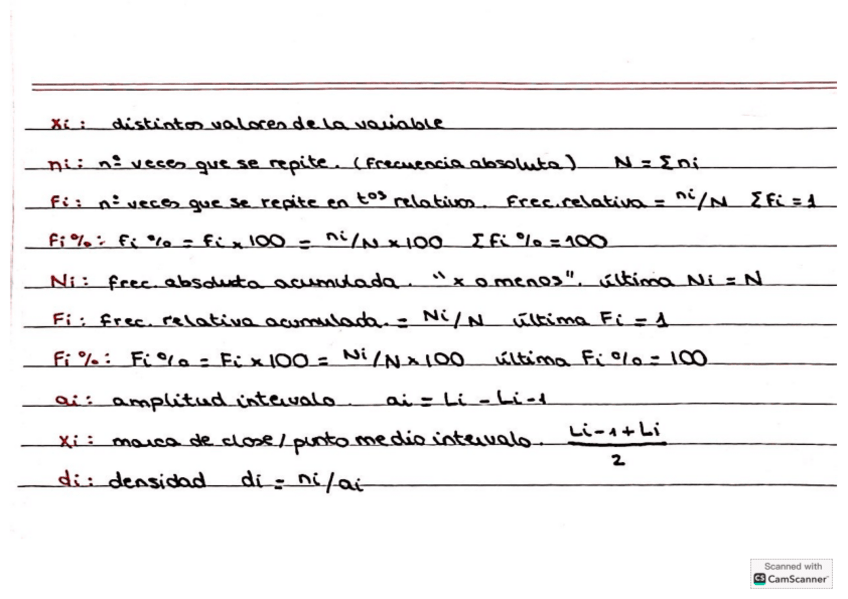 xi: distintos valores de la variable
ni: nº veces que se repite. (frecuencia absoluta) N = Σni
fi: nº veces que se repite en tos relativos. Frec. relativa = ni/N Σfi = 1
fi%: fi% = fi x 100 = ni/N x 100 Σfi% = 100
Ni: frec. absoluta acumulada. "x o menos". última Ni = N
Fi: frec. relativa acumulada. = Ni/N última Fi = 1
Fi%: Fi% = Fi x 100 = Ni/N x 100 última Fi% = 100
ai: amplitud intervalo. ai = Li - Li-1
xi: marca de clase/punto medio intervalo. Li-1 + Li / 2
di: densidad di = ni/ai
Scanned with
CS CamScanner